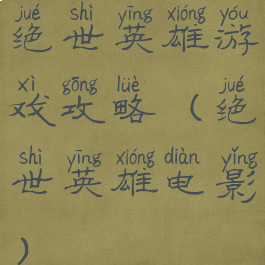 jué shì yīng xióng yóu
绝世英雄游
xì gōng lüè jué
戏攻略（绝
shì yīng xióng diàn yǐng
世英雄电影
）